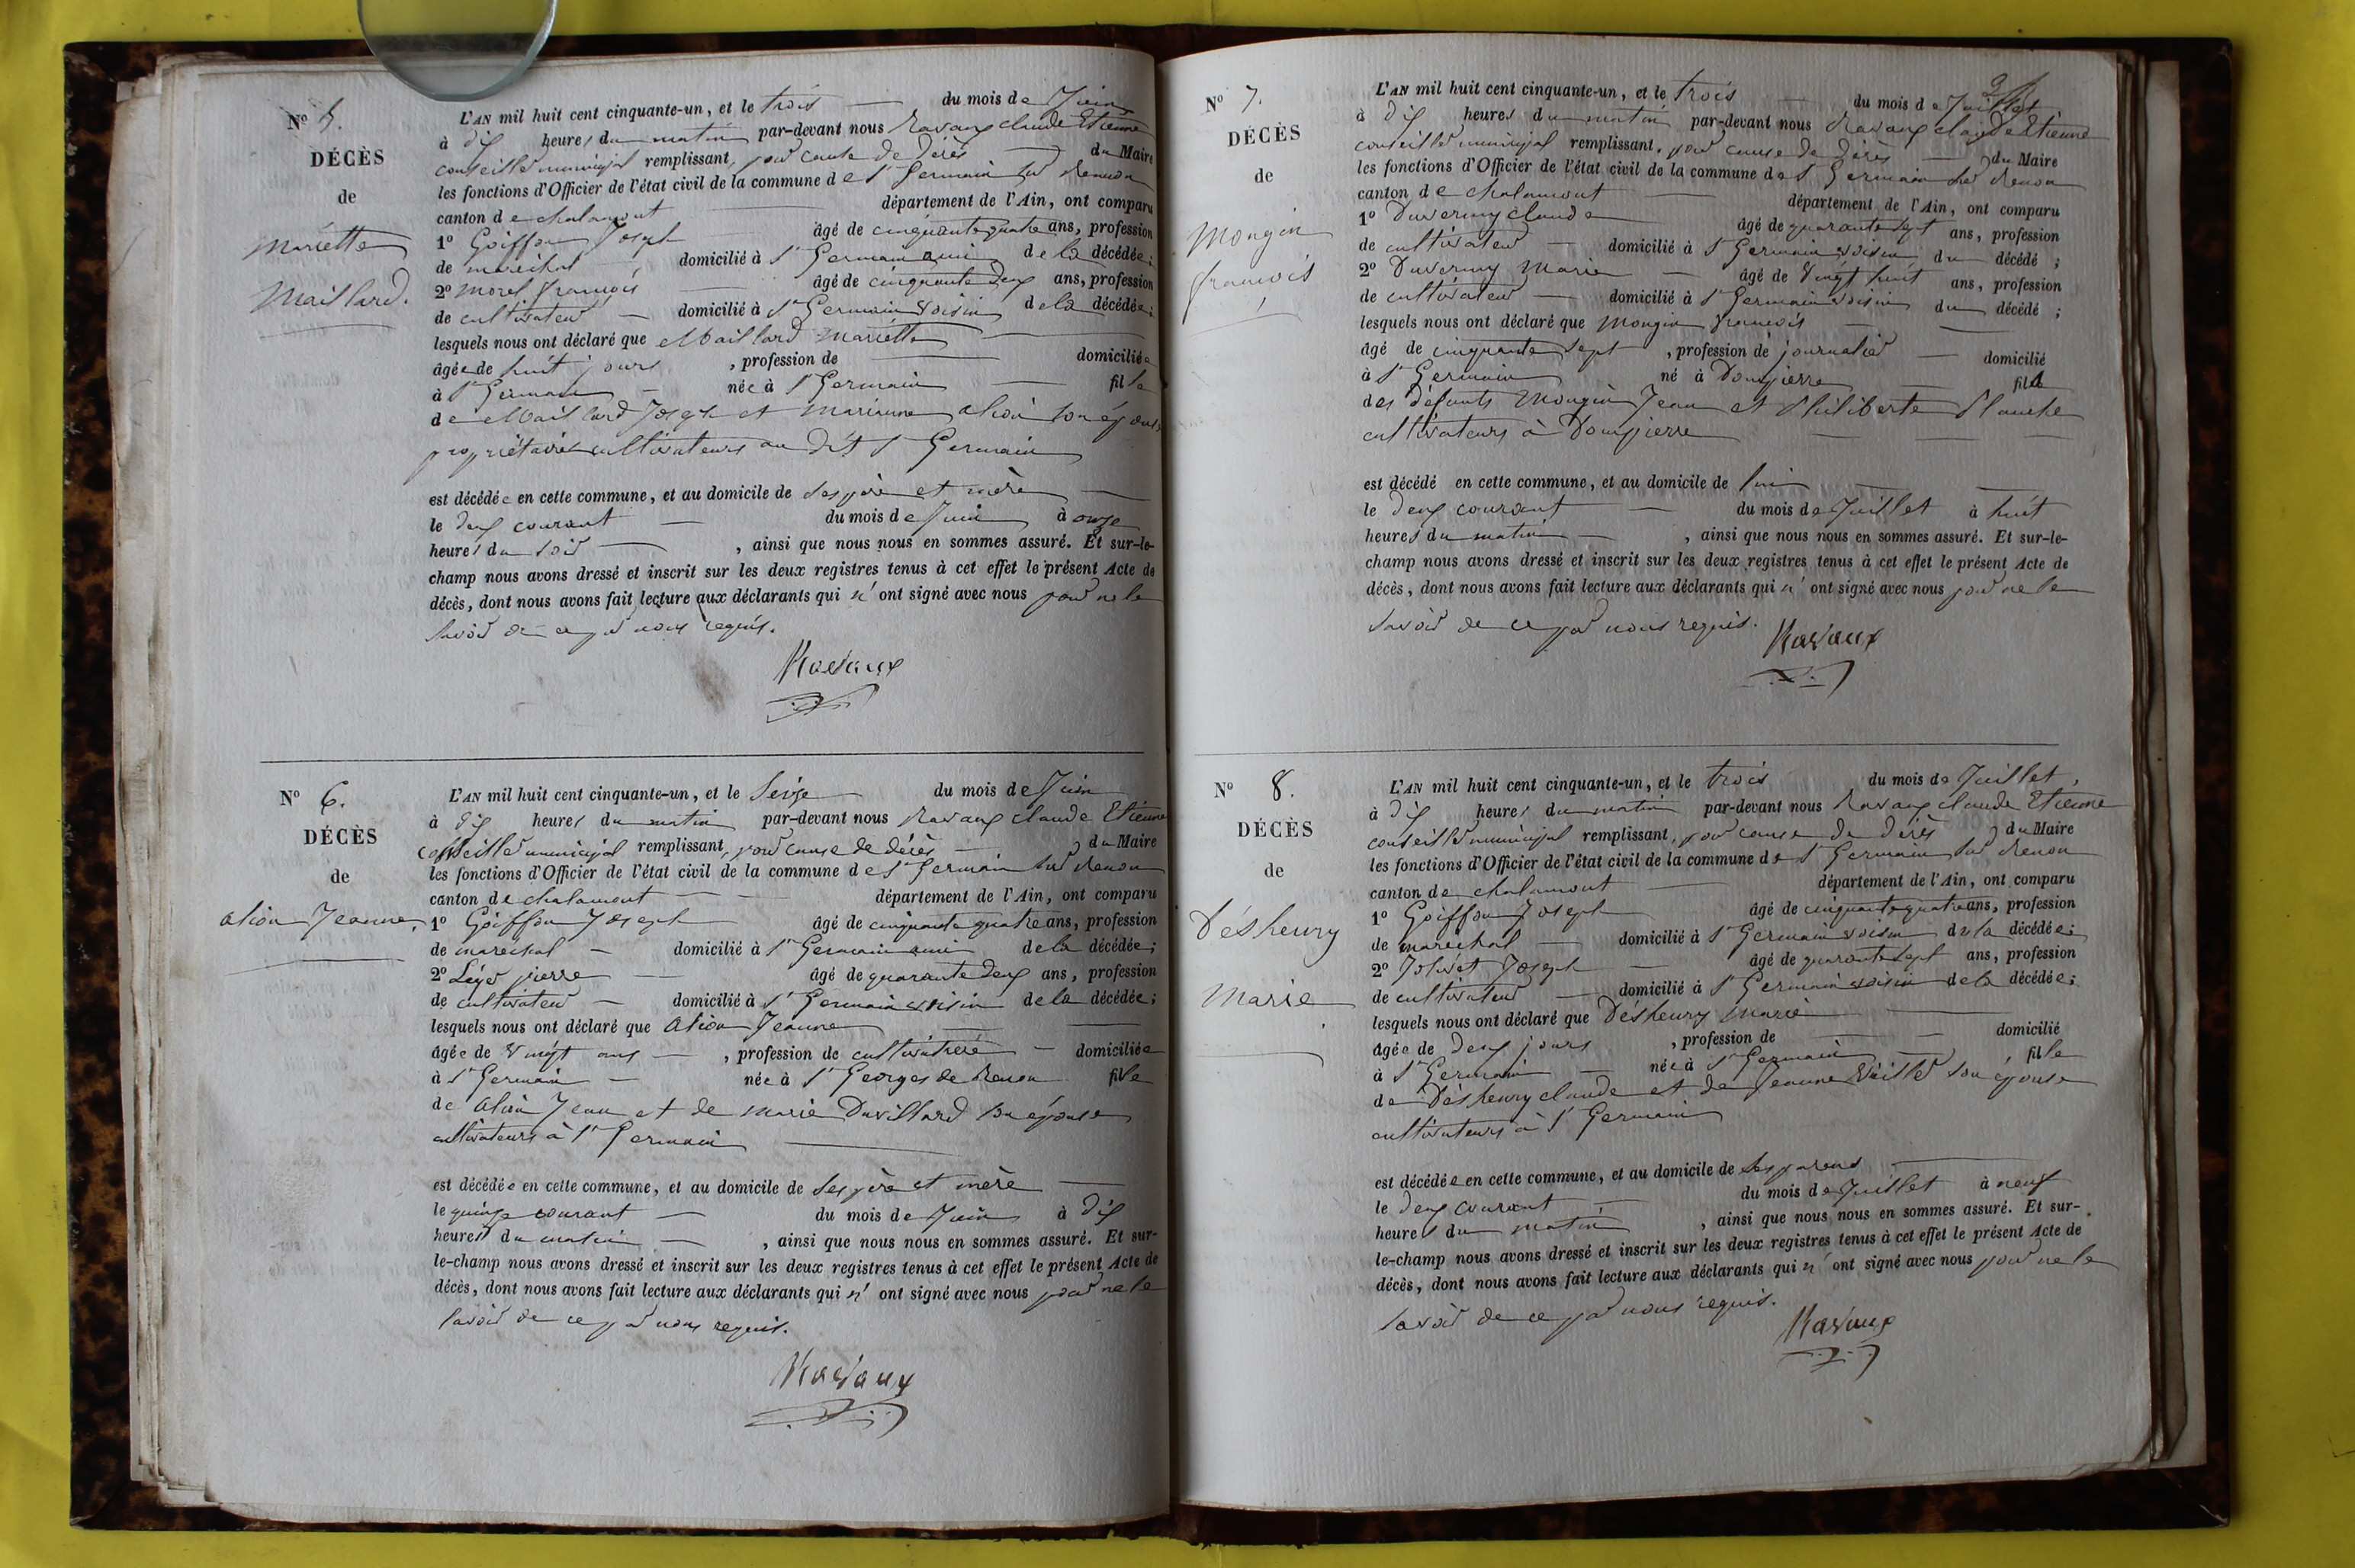 N° 5.
DÉCÈS
de
Mariette
Maillard.
L'AN mil huit cent cinquante-un, et le trois du mois de Juin
à dix heures du matin par-devant nous Ravaux claude Etienne
conseiller municipal remplissant, pour cause de décès du Maire
les fonctions d'Officier de l'état civil de la commune de St Germain sur Renon
canton de chalamont département de l'Ain, ont comparu
1° Goiffon Joseph âgé de cinquante quatre ans, profession
de maréchal domicilié à St Germain ami de la décédée;
2° Morel françois âgé de cinquante deux ans, profession
de cultivateur domicilié à St Germain voisin de la décédée;
lesquels nous ont déclaré que Maillard Mariette
âgée de huit jours, profession de domiciliée
à St Germain née à St Germain fille
de Maillard Joseph et Marianne alion son épouse
propriétaires cultivateurs au dit St Germain
est décédée en cette commune, et au domicile de ses père et mère
le deux courant du mois de Juin à onze
heures du soir, ainsi que nous nous en sommes assuré. Et sur-le-
champ nous avons dressé et inscrit sur les deux registres tenus à cet effet le présent Acte de
décès, dont nous avons fait lecture aux déclarants qui n'ont signé avec nous pour ne le
savoir de ce par nous requis.
Ravaux
N° 6.
DÉCÈS
de
alion Jeanne,
L'AN mil huit cent cinquante-un, et le seize du mois de Juin
à dix heures du matin par-devant nous Ravaux claude Etienne
conseiller municipal remplissant, pour cause de décès du Maire
les fonctions d'Officier de l'état civil de la commune de St Germain sur Renon
canton de chalamont département de l'Ain, ont comparu
1° Goiffon Joseph âgé de cinquante quatre ans, profession
de maréchal domicilié à St Germain ami de la décédée;
2° Léger pierre âgé de quarante deux ans, profession
de cultivateur domicilié à St Germain voisin de la décédée;
lesquels nous ont déclaré que alion Jeanne
âgée de vingt ans, profession de cultivatrice domiciliée
à St Germain née à St Georges de Renon fille
de alion Jean et de Marie Duvillard son épouse
cultivateurs à St Germain
est décédée en cette commune, et au domicile de ses père et mère
le quinze courant du mois de Juin à dix
heures du matin, ainsi que nous nous en sommes assuré. Et sur-
le-champ nous avons dressé et inscrit sur les deux registres tenus à cet effet le présent Acte de
décès, dont nous avons fait lecture aux déclarants qui n'ont signé avec nous pour ne le
savoir de ce par nous requis.
Ravaux
N° 7.
DÉCÈS
de
Mongin
françois
L'AN mil huit cent cinquante-un, et le trois du mois de Juillet
à dix heures du matin par-devant nous Ravaux claude Etienne
conseiller municipal remplissant, pour cause de décès du Maire
les fonctions d'Officier de l'état civil de la commune de St Germain sur Renon
canton de chalamont département de l'Ain, ont comparu
1° Duverny claude âgé de quarante sept ans, profession
de cultivateur domicilié à St Germain voisin du décédé;
2° Duverny Marie âgé de vingt huit ans, profession
de cultivateur domicilié à St Germain voisin du décédé;
lesquels nous ont déclaré que Mongin françois
âgé de cinquante sept, profession de journalier domicilié
à St Germain né à Dompierre fils
des défunts Mongin Jean et Philiberte Planche
cultivateurs à Dompierre
est décédé en cette commune, et au domicile de lui
le deux courant du mois de Juillet à huit
heures du matin, ainsi que nous nous en sommes assuré. Et sur-le-
champ nous avons dressé et inscrit sur les deux registres tenus à cet effet le présent Acte de
décès, dont nous avons fait lecture aux déclarants qui n'ont signé avec nous pour ne le
savoir de ce par nous requis.
Ravaux
N° 8.
DÉCÈS
de
Désheury
Marie
L'AN mil huit cent cinquante-un, et le trois du mois de Juillet,
à dix heures du matin par-devant nous Ravaux claude Etienne
conseiller municipal remplissant, pour cause de décès du Maire
les fonctions d'Officier de l'état civil de la commune de St Germain sur Renon
canton de chalamont département de l'Ain, ont comparu
1° Goiffon Joseph âgé de cinquante quatre ans, profession
de maréchal domicilié à St Germain voisin de la décédée;
2° Jolivet Joseph âgé de quarante sept ans, profession
de cultivateur domicilié à St Germain voisin de la décédée;
lesquels nous ont déclaré que Désheury Marie
âgée de deux jours, profession de domicilié
à St Germain née à St Germain fille
de Désheury claude et de Jeanne son épouse
cultivateurs à St Germain
est décédée en cette commune, et au domicile de ses parens
le deux courant du mois de Juillet à neuf
heures du matin, ainsi que nous nous en sommes assuré. Et sur-
le-champ nous avons dressé et inscrit sur les deux registres tenus à cet effet le présent Acte de
décès, dont nous avons fait lecture aux déclarants qui n'ont signé avec nous pour ne le
savoir de ce par nous requis.
Ravaux